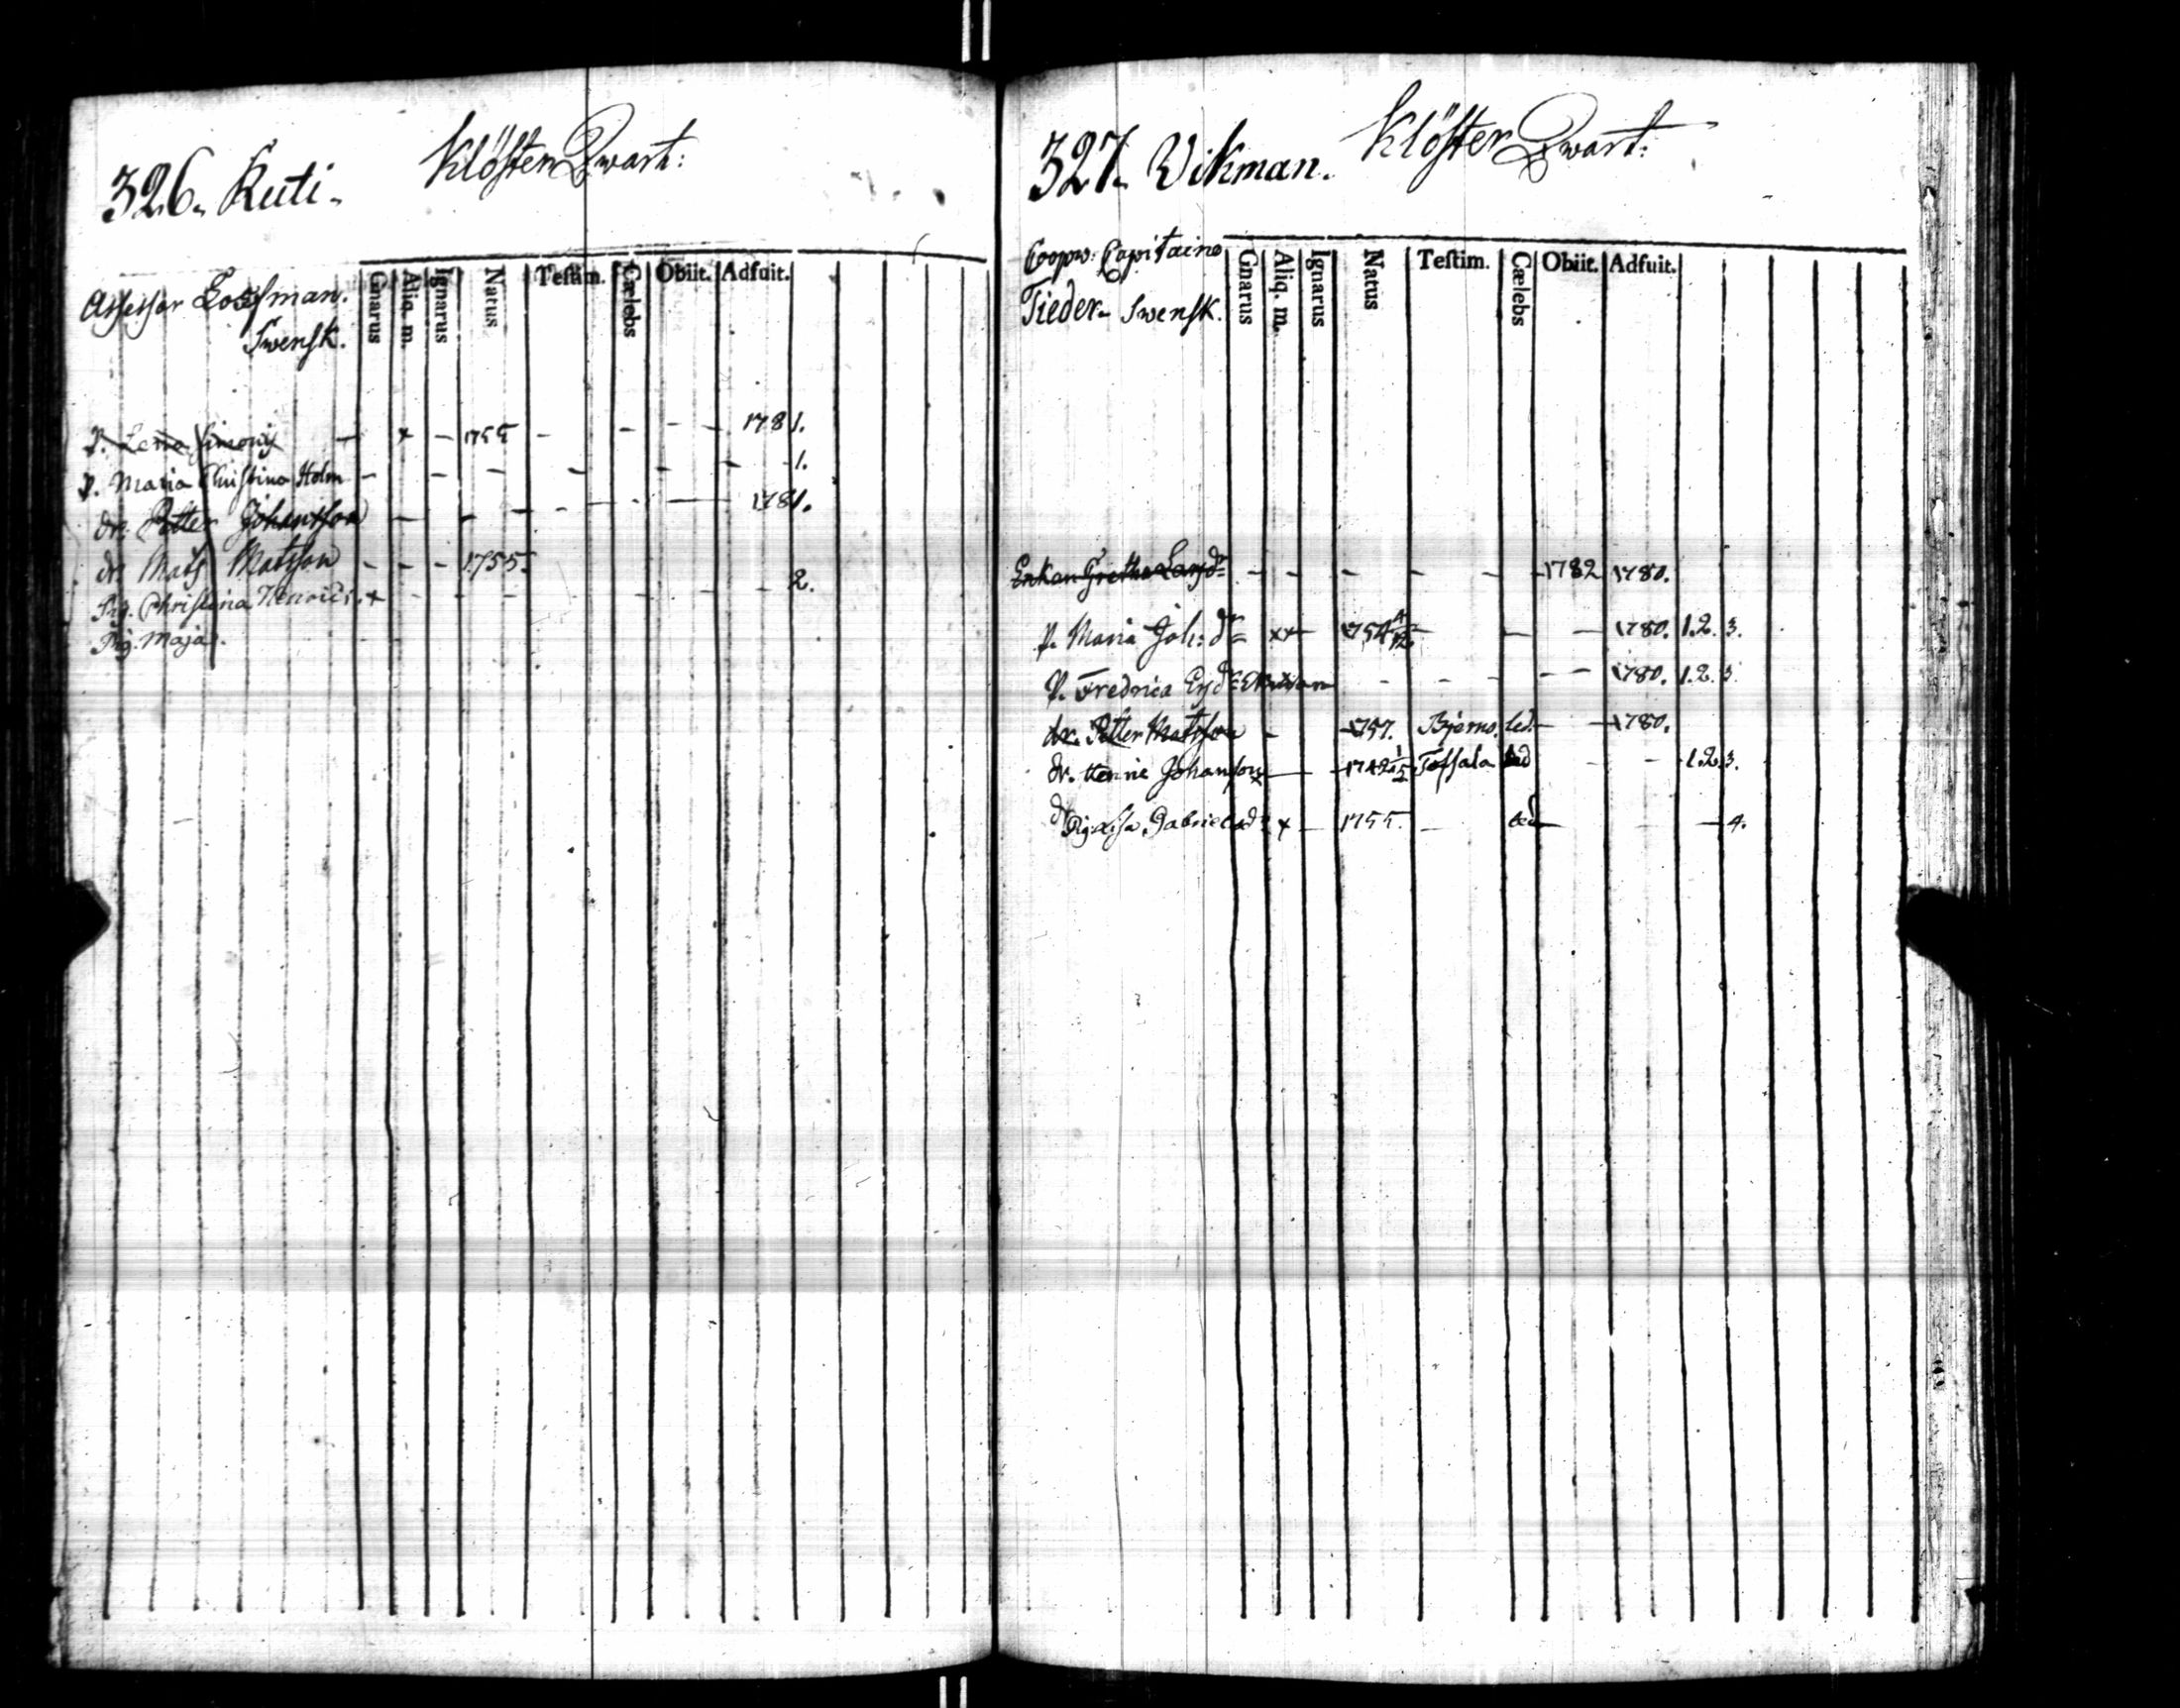 326. Kuti. Klöster Qwart:
Assessor Loofman.
Swensk.
Gnarus Aliq. m. Ignarus Natus Testim. Cælebs Obiit. Adfuit.
p. Lena Simons — x — 1755 — — — — 1781.
p. Maria Christina Holm — — — — — — 1.
dr. Petter Johansson — — — — — — 1781.
dr. Mats Matsson — — — 1755. — 2.
Pig. Christina Henrics. x — — — — —
Pig. Maja.
327. Vikman. Klöster Qwart:
Coopv. Capitaine
Tieder. Swensk.
Gnarus Aliq. m. Ignarus Natus Testim. Cælebs Obiit. Adfuit.
Enkan Gretha Larsdr — — — — — — 1782 1780.
p. Maria Joh: dr xx — 1754 4/12 — — — 1780. 1.2.3.
p. Fredrica Ersdr — — — — — 1780. 1.2.3.
dr. Petter Matsson — 1757. Bjerno. led. — 1780.
dr. Henric Johansson — 1742 1/5 Töfsala led — — 1.2.3.
Pig: Lisa Gabrielsdr x — 1755. — led — — 4.